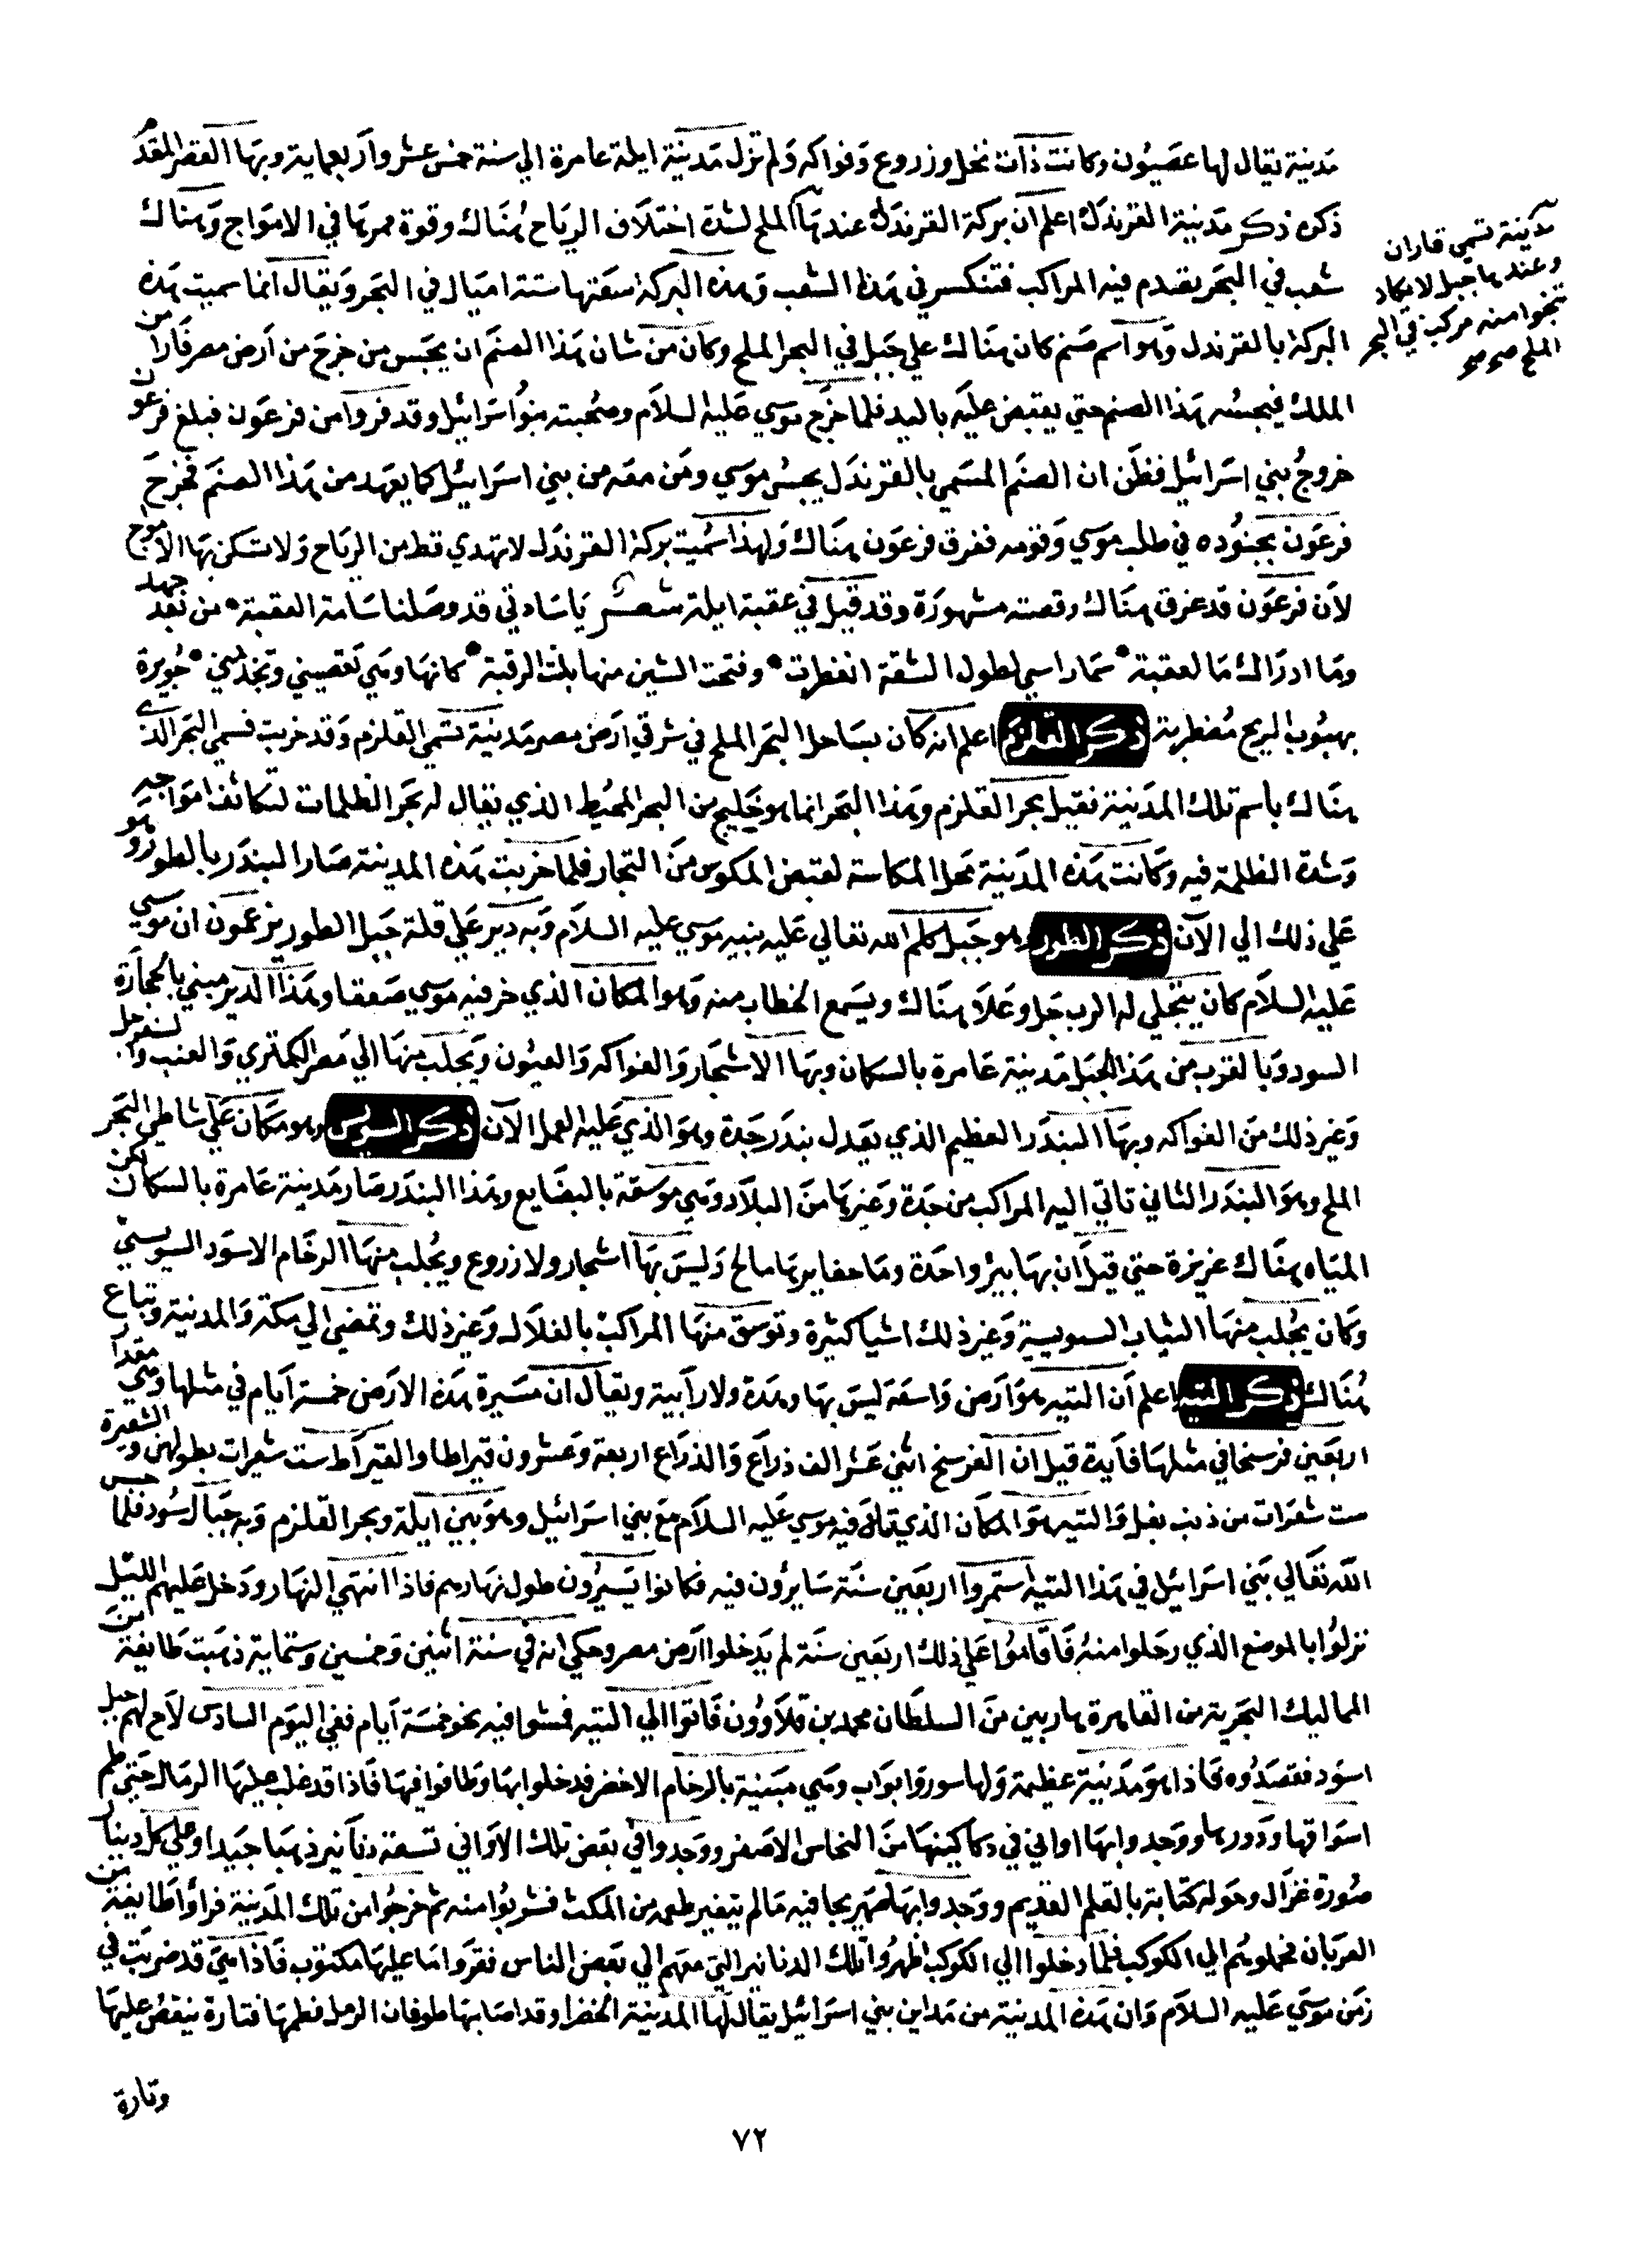 مدينة يقال لها عصيون وكانت ذات نخل وزروع وفواكه ولم تزل مدينة ايلة عامرة الي سنة خمس عشر واربعماية وبها القصر المقدم
ذكره ذكر مدينة القرندل اعلم ان بركة القرندل عندها الملح لشدة اختلاف الرياح هناك وقوة ممرها في الامواج وهناك
مدينة تسمي قاران
وعندها جبل لا يكاد
تنجوا منه مركب في البحر
الملح صح صح
شعب في البحر يقدم فيه المراكب فتنكسر في هذا الشعب وهذه البركة سعتها ستة اميال في البحر ويقال انما سميت هذه
البركة بالقرندل وهو اسم صنم كان هناك علي جبل في البحر الملح وكان من شان هذا الصنم ان يحبس من خرج من ارض مصر فارا من
الملك فيحبسه هذا الصنم حتي يقبض عليه باليد فلما خرج موسي عليه السلام وصحبته بنوا اسرائيل وقد فروا من فرعون فبلغ فرعون
خروج بني اسرائيل فظن ان الصنم المسمي بالقرندل يحبس موسي ومن معه من بني اسرائيل كما يعهد من هذا الصنم فخرج
فرعون بجنوده في طلب موسي وقومه ففرق فرعون هناك ولهذا سميت بركة القرندل لا تهدي قط من الرياح ولا تسكن بها الامواج
لان فرعون قد غرق هناك وقصته مشهورة وقد قيل في عقبة ايلة شعر يا سادتي قد وصلنا سامة العقبة * من بعد جهد
وما ادراك ما لعقبة * سمار اسي لطول الشقة انفطرت * وفتحت الشين منها بلت الرقبة * كانها وهي تعصيني وتجذبني * جويرة
بهبوب الريح مضطربة ذكر القلزم اعلم انه كان بساحل البحر الملح في شرقي ارض مصر مدينة تسمي القلزم وقد خربت فسمي البحر الذي
هناك باسم تلك المدينة فقيل بحر القلزم وهذا البحر انما هو خليج من البحر المحيط الذي يقال له بحر الظلمات لتكاثف امواجه
وشدة الظلمة فيه وكانت هذه المدينة محل المكاسة لقبض المكوس من التجار فلما خربت هذه المدينة صار البندر بالطور وهو
علي ذلك الي الآن ذكر الطور وهو جبل كلم الله تعالي عليه نبيه موسي عليه السلام وبه دير علي قلة جبل الطور يزعمون ان موسي
عليه السلام كان يتجلي له الرب جل وعلا هناك ويسمع الخطاب منه وهو المكان الذي خر فيه موسي صعقا وهذا الدير مبني بالحجارة
السود وبالقرب من هذا الجبل مدينة عامرة بالسكان وبها الاشجار والفواكه والعيون ويجلب منها الي مصر الكمثري والعنب والسفرجل
وغير ذلك من الفواكه وبها البندر العظيم الذي يعدل بندر جدة وهو الذي عليه العمل الآن ذكر السويس وهو مكان علي شاطي البحر
الملح وهو البندر الثاني تاتي اليه المراكب من جدة وغيرها من البلاد وهي موسقة بالبضايع وهذا البندر صار مدينة عامرة بالسكان لكن
المياه هناك عزيزة حتي قيل ان بها بير واحدة وما حفايرها مالح وليس بها اشجار ولا زروع ويجلب منها الرخام الاسود السويسي
وكان يجلب منها الثياب السويسية وغير ذلك اشيا كثيرة وتوسق منها المراكب بالغلال وغير ذلك وتمضي الي مكة والمدينة وتباع
هناك ذكر التيه اعلم ان التيه هو ارض واسعة ليس بها وهدة ولا رابية ويقال ان مسيرة هذه الارض خمسة ايام في مثلها وهي مقدار
اربعين فرسخا في مثلها فايدة قيل ان الفرسخ اثني عشر الف ذراع والذراع اربعة وعشرون قيراطا والقيراط ست شعيرات بطولهن والشعيرة
ست شعرات من ذنب بغل والتيه هو المكان الذي تاه فيه موسي عليه السلام مع بني اسرائيل وهو بين ايلة وبحر القلزم وبه جبال سود فلما حبس
الله تعالي بني اسرائيل في هذا التيه استمروا اربعين سنة سايرون فيه فكانوا يسيرون طول نهارهم فاذا انتهي النهار ودخل عليهم الليل
نزلوا بالموضع الذي رحلوا منه فاقاموا علي ذلك اربعين سنة لم يدخلوا ارض مصر وحكي انه في سنة اثنين وخمسين وستماية ذهبت طايفة من
المماليك البحرية من القاهرة هاربين من السلطان محمد بن قلاوون فاتوا الي التيه فمشوا فيه نحو خمسة ايام ففي اليوم السادس لاح لهم جبل
اسود فقصدوه فاذا هو مدينة عظيمة ولها سور وابواب وهي مبنية بالرخام الاخضر فدخلوا بها وطافوا فيها فاذا قد غلب عليها الرمال حتي طم
اسواقها ودورها ووجدوا بها اواني في دكاكينها من النحاس الاصفر ووجدوا في بعض تلك الاواني تسعة دنانير ذهبا جيدا وعلي كل دينار
صورة غزال وحوله كتابة بالقلم القديم ووجدوا بها صهريجا فيه ما لم يتغير طعمه من المكث فشربوا منه ثم خرجوا من تلك المدينة فراوا طايفة من
العربان فحملوهم الي الكوكب فلما دخلوا الي الكوكب اظهروا تلك الدنانير التي معهم الي بعض الناس فقروا ما عليها مكتوب فاذا هي قد ضربت في
زمن موسي عليه السلام وان هذه المدينة من مداين بني اسرائيل يقال لها المدينة الخضرا وقد اصابها طوفان الرمل فطمها فتارة ينقص عليها
وتارة
٧٢